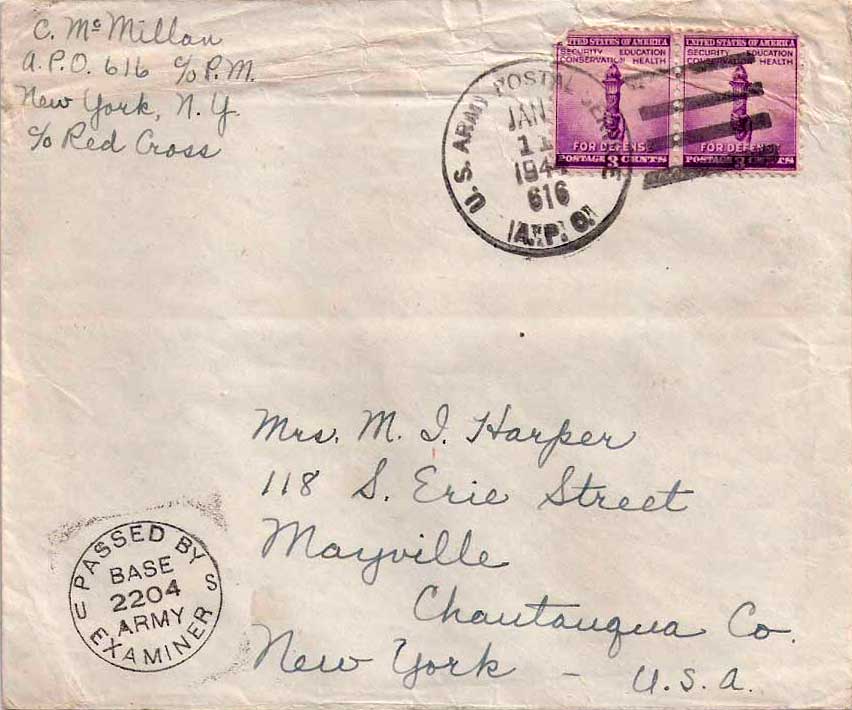 C. McMillan
A.P.O. 616 c/o P.M.
New York, N.Y.
c/o Red Cross
UNITED STATES OF AMERICA
SECURITY EDUCATION
CONSERVATION HEALTH
FOR DEFENSE
POSTAGE 3 CENTS
UNITED STATES OF AMERICA
SECURITY EDUCATION
CONSERVATION HEALTH
FOR DEFENSE
POSTAGE 3 CENTS
U.S. ARMY POSTAL SERVICE
JAN
11
616
A.P.O.
Mrs. M. I. Harper
118 S. Erie Street
Mayville
Chautauqua Co.
New York - U.S.A.
PASSED BY
BASE
2204
ARMY
EXAMINER
U S